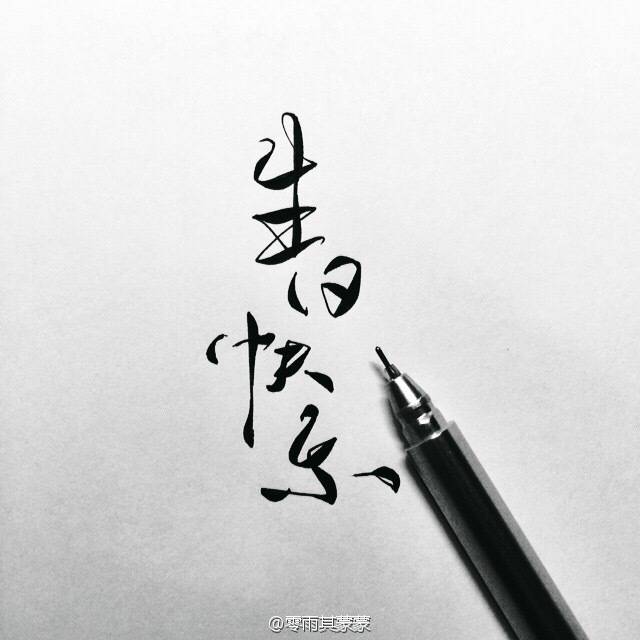 生日快乐
@零雨其蒙蒙